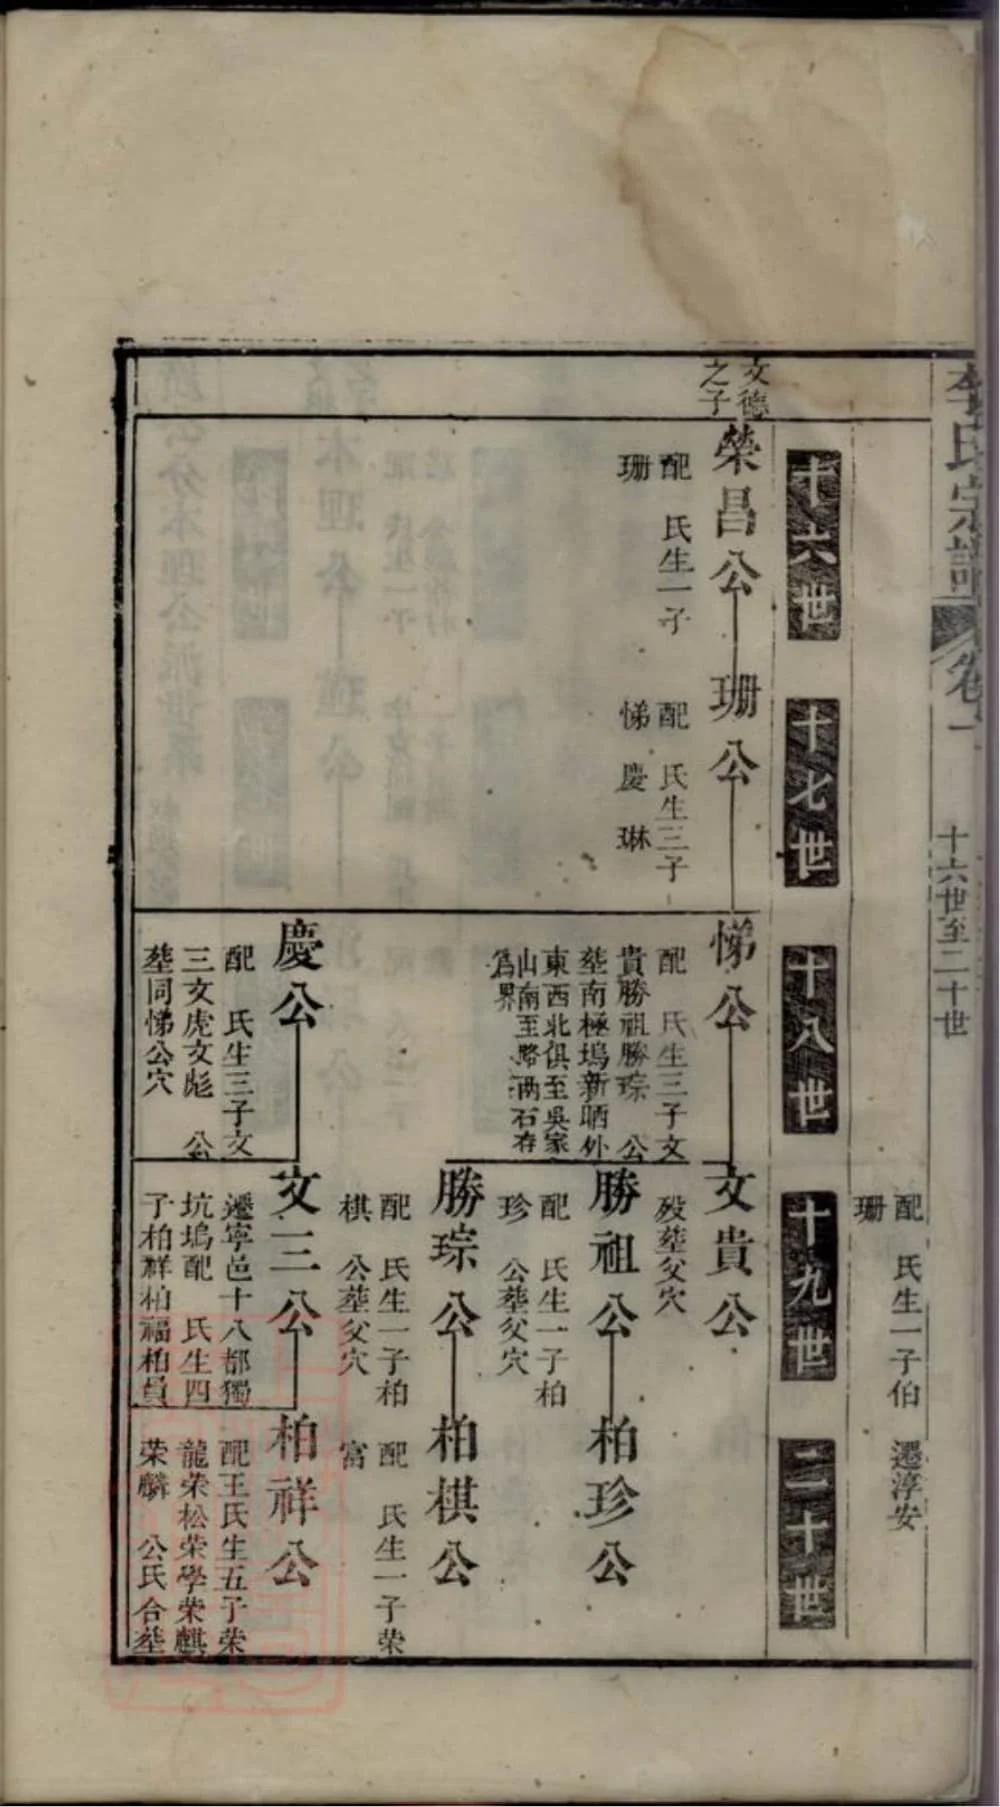 李氏宗譜
卷一
十六世至二十世
配 氏生一子伯
珊
遷淳安
十六世
十七世
十八世
十九世
二十世
文德
之子
榮昌公
配 氏生一子
珊
珊公
配 氏生三子
悌 慶 琳
悌公
配 氏生三子文
貴勝祖勝琮 公
塟南極塢新晒外
東西北俱至吳家
山南至路兩石存
為界
慶公
配 氏生三子文
三文虎文彪 公
塟同悌公穴
文貴公
歿塟父穴
勝祖公
配 氏生一子柏
珍 公塟父穴
勝琮公
配 氏生一子柏
棋 公塟父穴
文三公
遷寧邑十八都獨
坑塢配 氏生四
子柏祥柏福柏員
柏珍公
柏棋公
配 氏生一子荣
富
柏祥公
配王氏生五子荣
龍荣松荣學荣麒
荣麟 公氏合塟